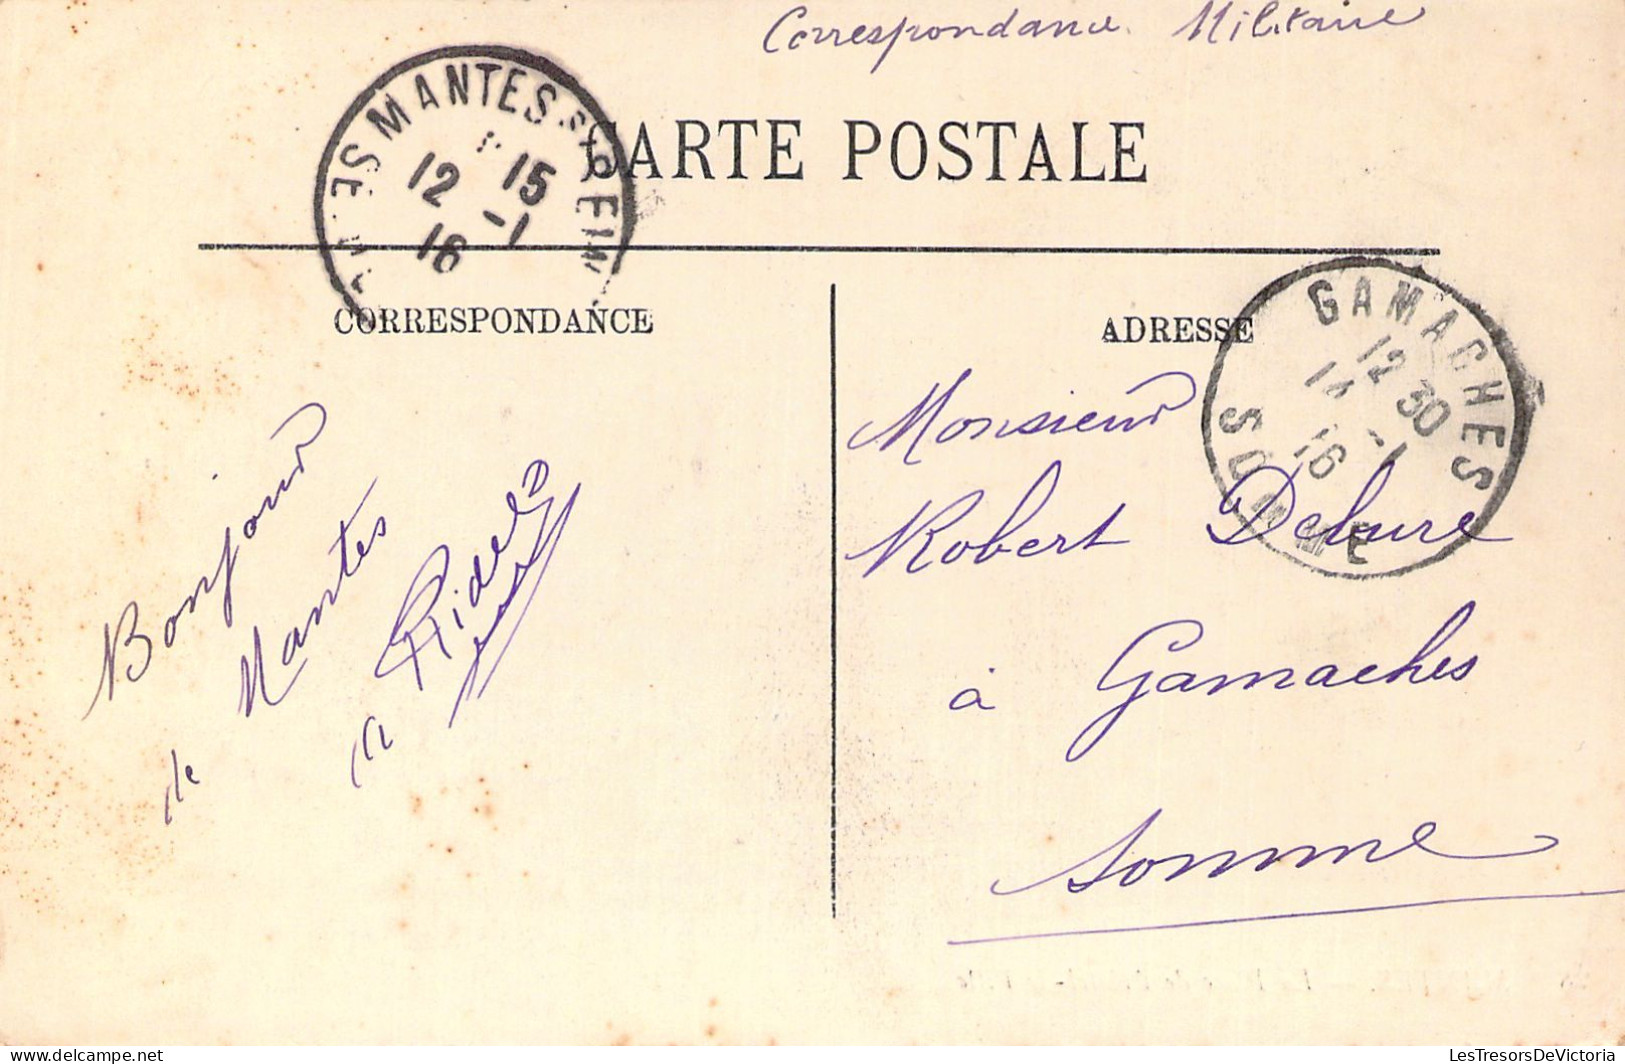 Correspondance Militaire
CARTE POSTALE
MANTES S/SEINE
12 15
-1
16
CORRESPONDANCE
ADRESSE
GAMACHES
12 30
-1
16
SOMME
Monsieur
Robert
à Gamaches
Somme
Bonjour
de Mantes
Ridel
LesTresorsDeVictoria
www.delcampe.net